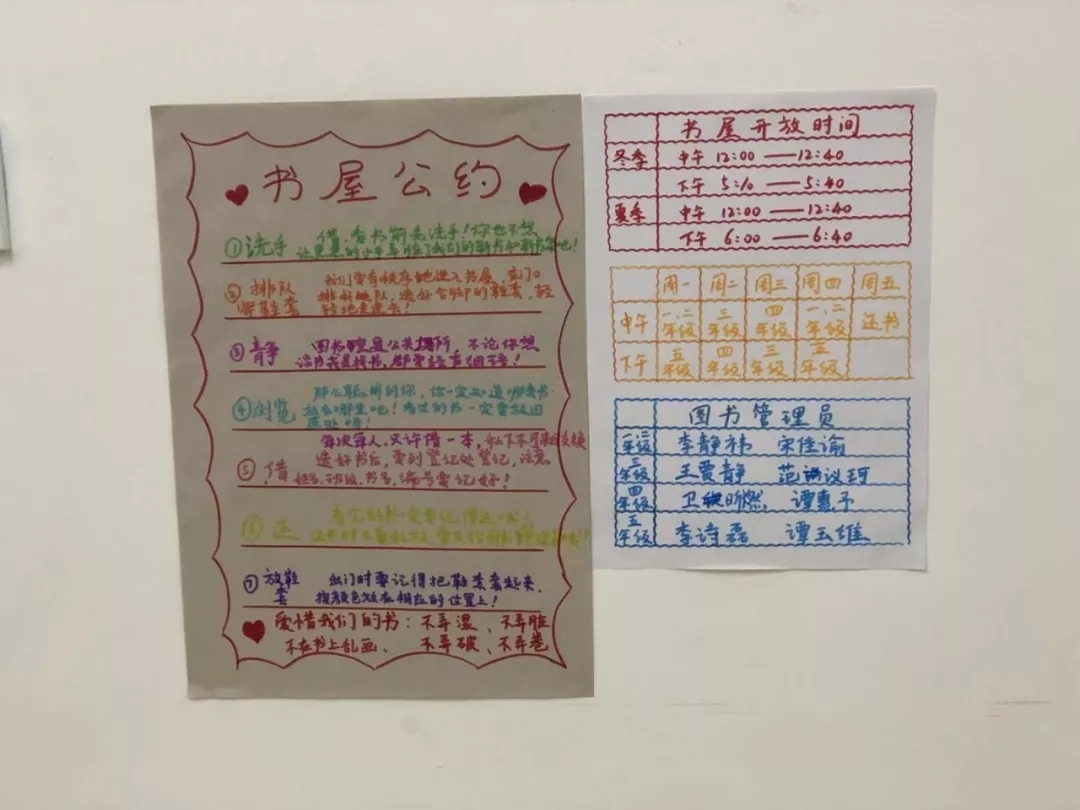 书屋公约
①洗手 借、看书前先洗手！你也不想
让黑黑的小手弄脏了我们的新书和新书架吧！
②排队 我们要有秩序地进入书屋，在门口
穿鞋套 排好队，选好合脚的鞋套，轻
轻地走进去！
③静 图书屋是公共场所，不论你想
读书或是找书，都要轻声细语！
④浏览 那么聪明的你，你一定知道哪类书
放在哪里吧！看过的书一定要放回
原处哦！
每次每人，只许借一本，私下不可来回交换
⑤借 选好书后，要到登记处登记，注意：
姓名、班级、书名、编号要记好！
⑥还 看完的书一定要记得还哦！
还书时不要乱放，
⑦放鞋套 出门时要记得把鞋套套起来，
按颜色放在相应的位置上！
爱惜我们的书：不弄湿、不弄脏
不在书上乱画、 不弄破、不弄卷
书屋开放时间
冬季 中午 12:00——12:40
下午 5:10——5:40
夏季 中午 12:00——12:40
下午 6:00——6:40
周一 周二 周三 周四 周五
中午 一、二年级 三年级 四年级 一、二年级 还书
下午 五年级 四年级 三年级 五年级
图书管理员
一二年级 李静祎 宋佳谕
三年级 王贾静 范议珂
四年级 卫昕燃 谭惠予
五年级 李诗磊 谭玉维